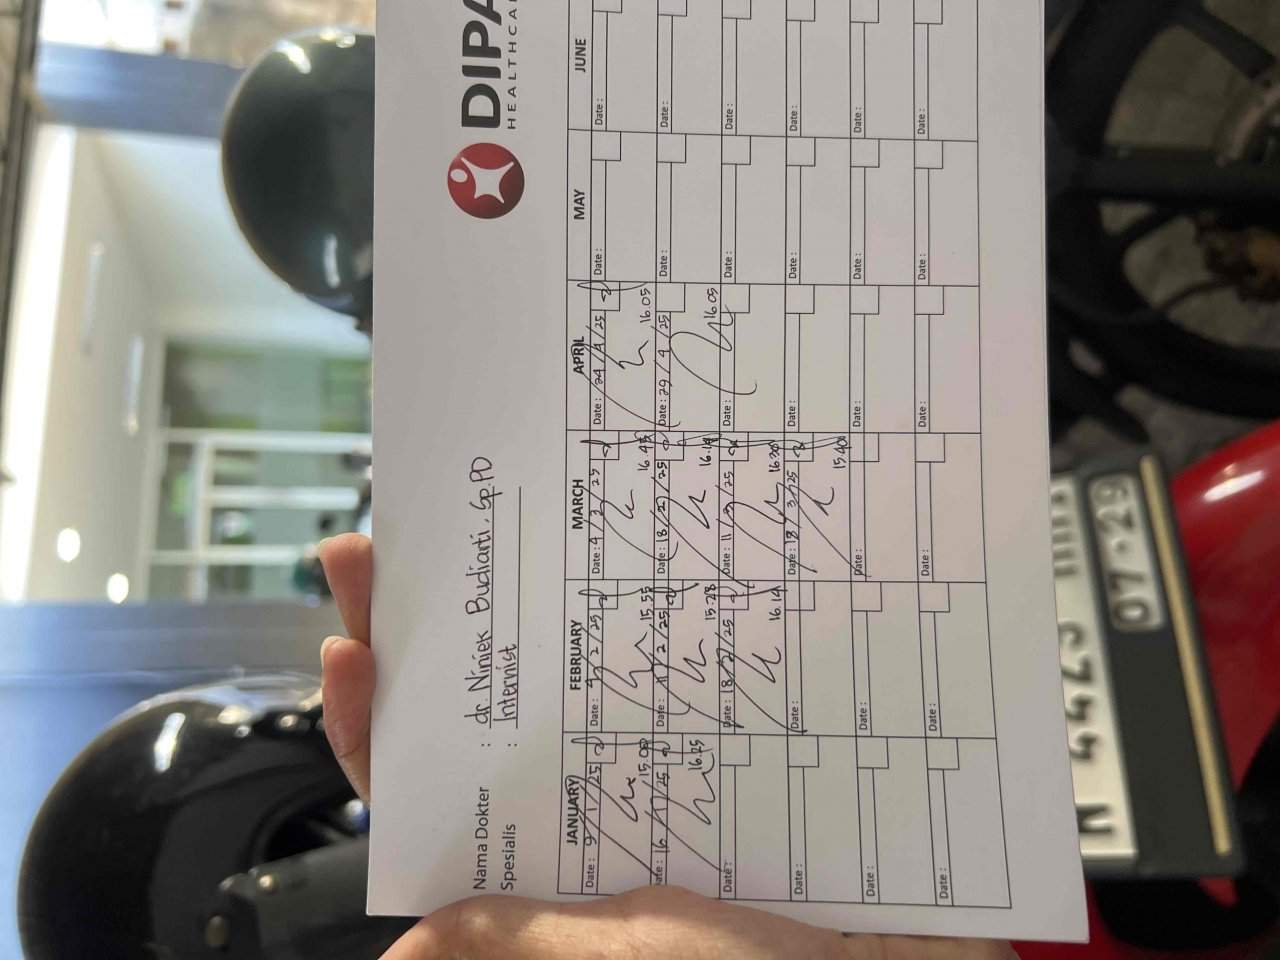 DIPA
HEALTHCA
Nama Dokter : dr. Niniek Budiarti, Sp.PD
Spesialis : Internist
JANUARY FEBRUARY MARCH APRIL MAY JUNE
Date: 9/1/25 Date: 4/2/25 Date: 4/3/25 Date: 24/4/25 Date: Date:
15.00 15.55 16.05
Date: 16/1/25 Date: 11/2/25 Date: 29/4/25 Date: Date:
16.25 15.28 16.05
Date: Date: 18/2/25 Date: 11/3/25 Date: Date: Date:
16.14 16.30
Date: Date: Date: 18/3/25 Date: Date: Date:
15.40
Date: Date: Date: Date: Date: Date:
Date: Date: Date: Date: Date: Date:
07·29